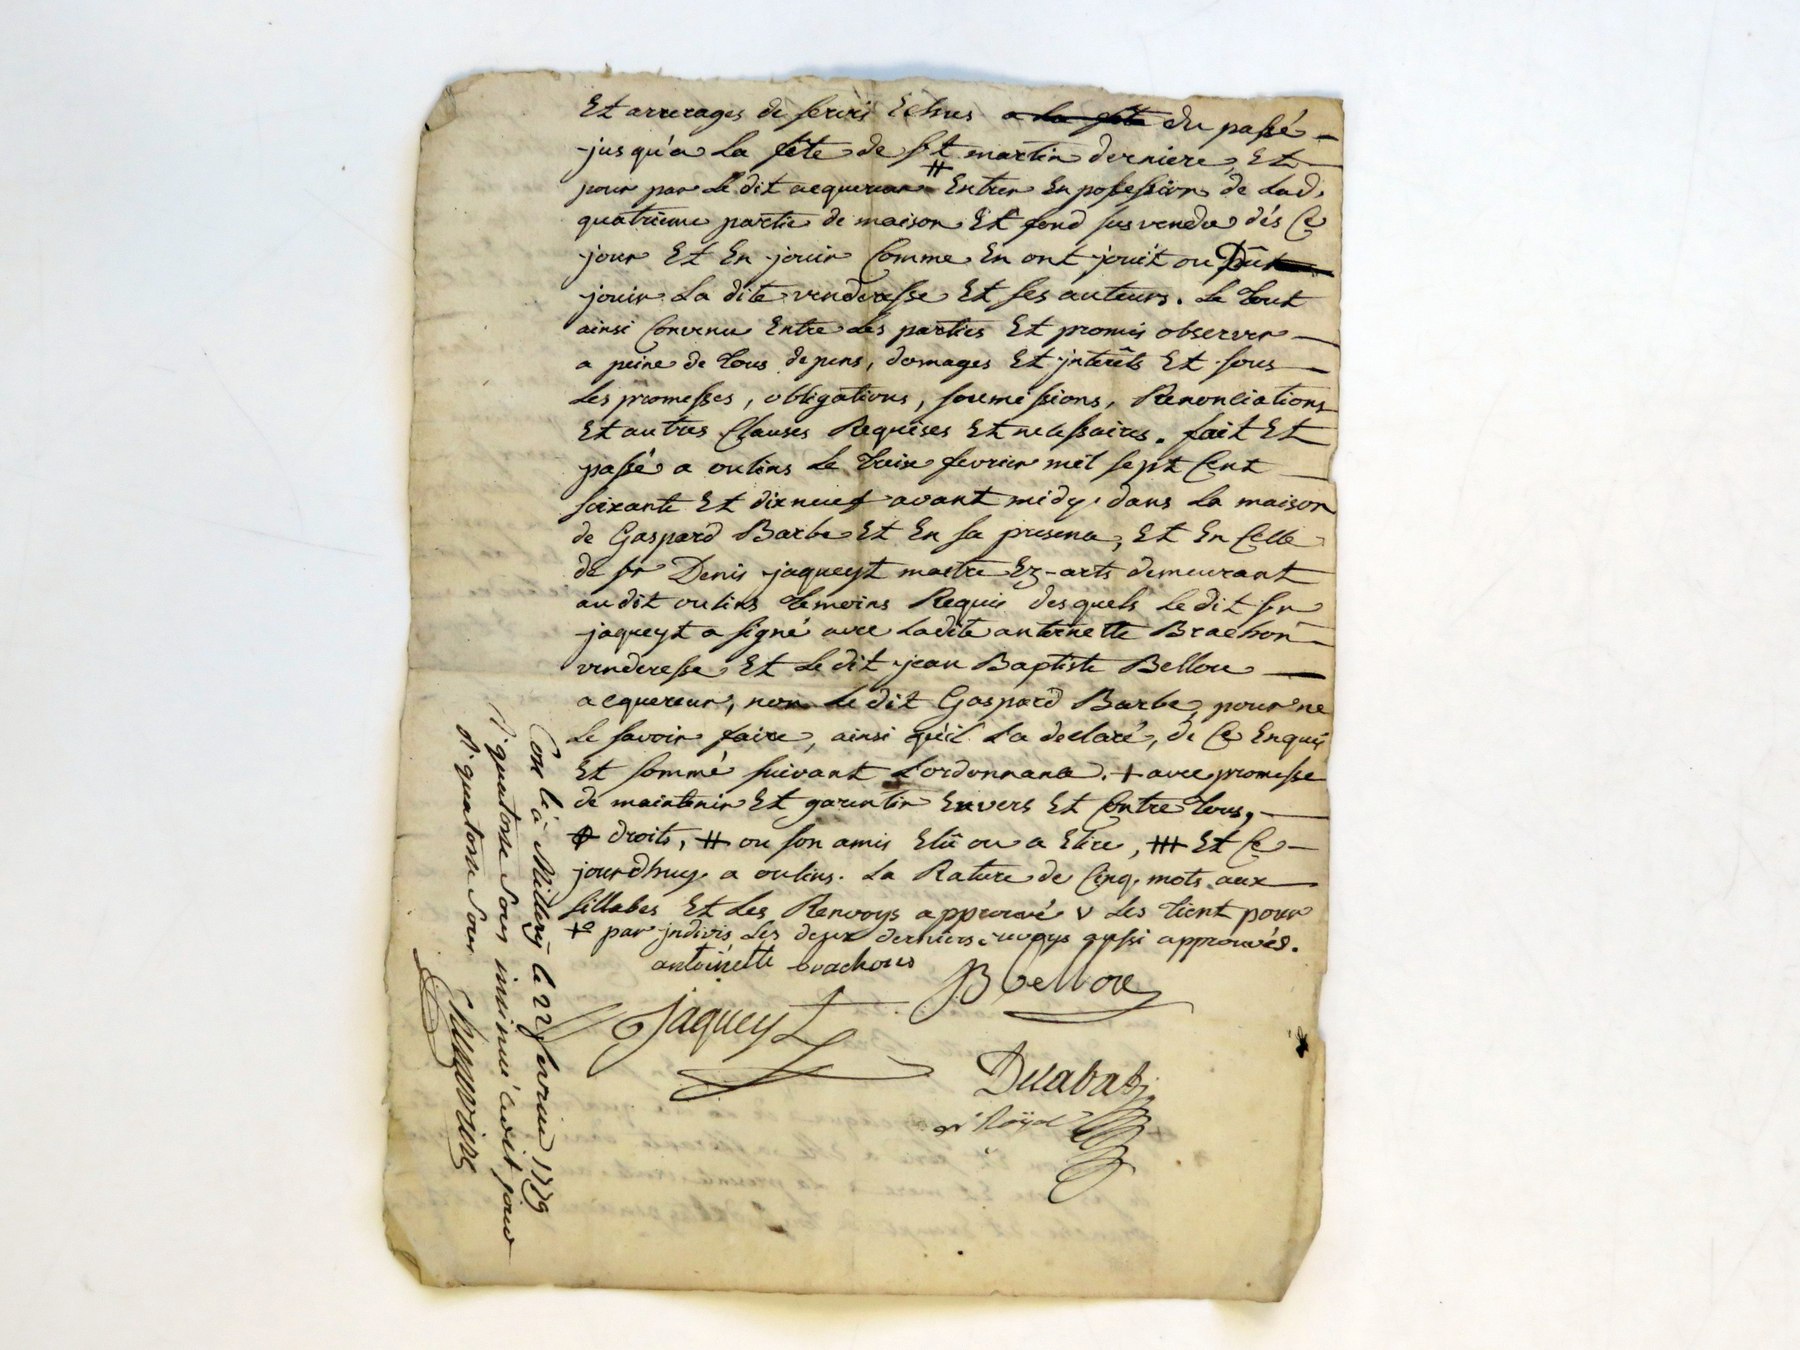 Et arrerages de servis Echus a la fête du passé
jusqu'a la fête de st martin derniere, Et
pour par le dit acquereur # Entrer En possession de lad.
quatrieme partie de maison Et fond susvendu dés Ce
jour Et En jouir Comme En ont jouit ou Dû
jouir la dite venderesse Et ses auteurs. Le tout
ainsi Convenu Entre les parties Et promis observer
a peine de tous depens, domages Et jnterêts Et sous
les promesses, obligations, soumissions, Renonciations
Et autres Clauses Requises Et necessaires. fait Et
passé a oulins le treize fevrier mil sept Cent
soixante Et dixneuf avant midy. dans la maison
de Gaspard Barbe Et En sa presence, Et En Celle
de sr Denis jaqueyt maitre Ez-arts demeurant
au dit oulins temoins Requis desquels le dit sr
jaqueyt a signé avec ladite antoinette Brachon
venderesse Et le dit jean Baptiste Bellou
acquereur, non le dit Gaspard Barbe, pour ne
le savoir faire, ainsi qu'il la declaré, de Ce Enquis
Et sommé suivant l'ordonnance. + avec promesse
de maintenir Et garentir Envers Et Contre tous,
droits, # ou son amis Elû ou a Elire, Et Ce
jourdhuy a oulins. la Rature de Cinq. mots aux
sillabes Et les Renvoys approuvé v les tient pour
par jndivis les deux derniers renvoys aussi approuvés.
antoinette brachons
JB Bellou
Jaqueyt
Delabat
nre Royal
Con. lé à Millery le 22 fevrier 1779
R. quatorse sous insinué ledit jour
R. quatorse sous